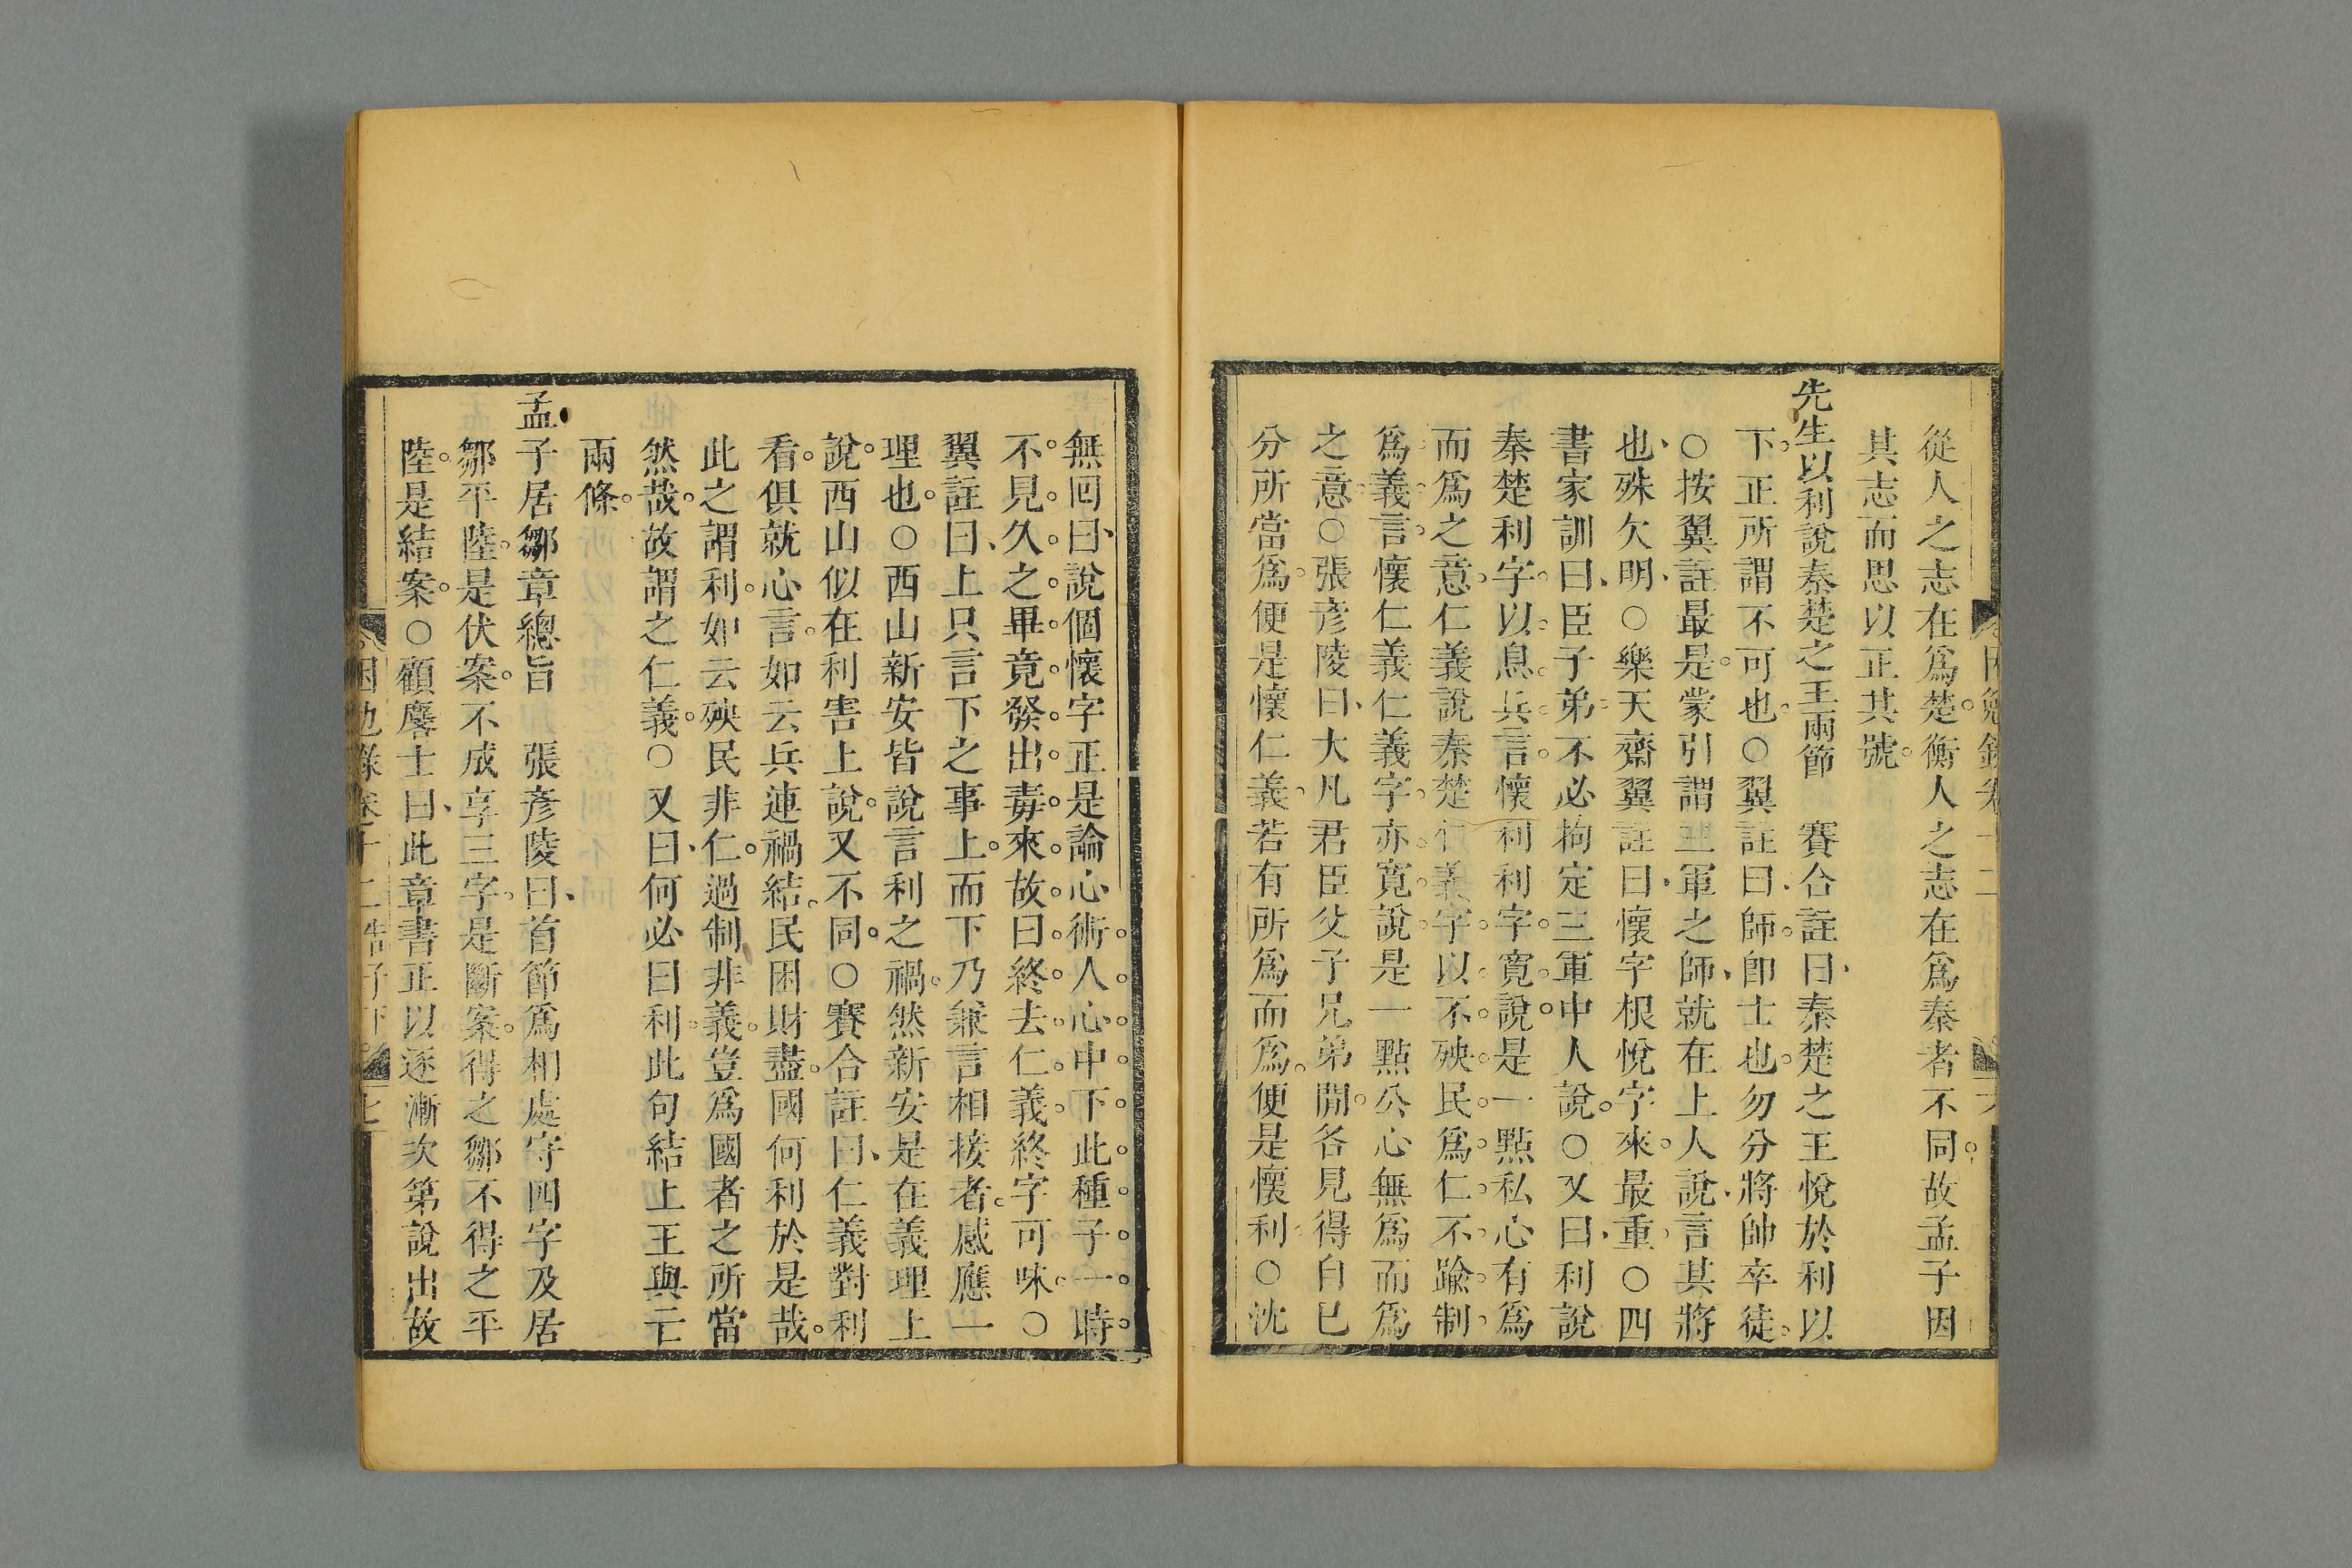 從人之志在爲楚衡人之志在爲秦者不同故孟子因
其志而思以正其號
先生以利說秦楚之王兩節　賽合註曰秦楚之王悅於利以
下正所謂不可也○翼註曰師卽士也勿分將帥卒徒
○按翼註最是蒙引謂三軍之師就在上人說言其將
也殊欠明○樂天齋翼註曰懷字根悅字來最重○四
書家訓曰臣子弟不必拘定三軍中人說○又曰利說
秦楚利字以息兵言懷利利字寬說是一點私心有爲
而爲之意仁義說秦楚仁義字以不殃民爲仁不踰制
爲義言懷仁義仁義字亦寬說是一點公心無爲而爲
之意○張彥陵曰大凡君臣父子兄弟間各見得自已
分所當爲便是懷仁義若有所爲而爲便是懷利○沈
無回曰說個懷字正是論心術人心中下此種子一時
不見久之畢竟發出毒來故曰終去仁義終字可味○
翼註曰上只言下之事上而下乃兼言相接者感應一
理也○西山新安皆說言利之禍然新安是在義理上
說西山似在利害上說又不同○賽合註曰仁義對利
看俱就心言如云兵連禍結民困財盡國何利於是哉
此之謂利如云殃民非仁過制非義豈爲國者之所當
然哉故謂之仁義○又曰何必曰利此句結上王與二
兩條
孟子居鄒章總旨　張彥陵曰首節爲相處守四字及居
鄒平陸是伏案不成享三字是斷案得之鄒不得之平
陸是結案○顧麐士曰此章書正以逐漸次第說出故
困勉錄卷十二孟子下　七